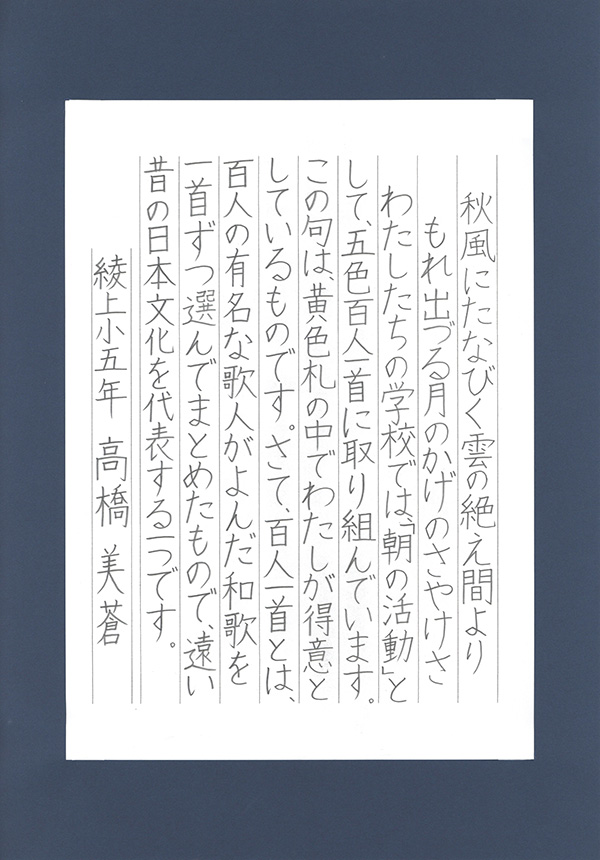 秋風にたなびく雲の絶え間より
もれ出づる月のかげのさやけさ
わたしたちの学校では、「朝の活動」と
して、五色百人一首に取り組んでいます。
この句は、黄色札の中でわたしが得意と
しているものです。さて、百人一首とは、
百人の有名な歌人がよんだ和歌を
一首ずつ選んでまとめたもので、遠い
昔の日本文化を代表する一つです。
綾上小五年 高橋 美蒼